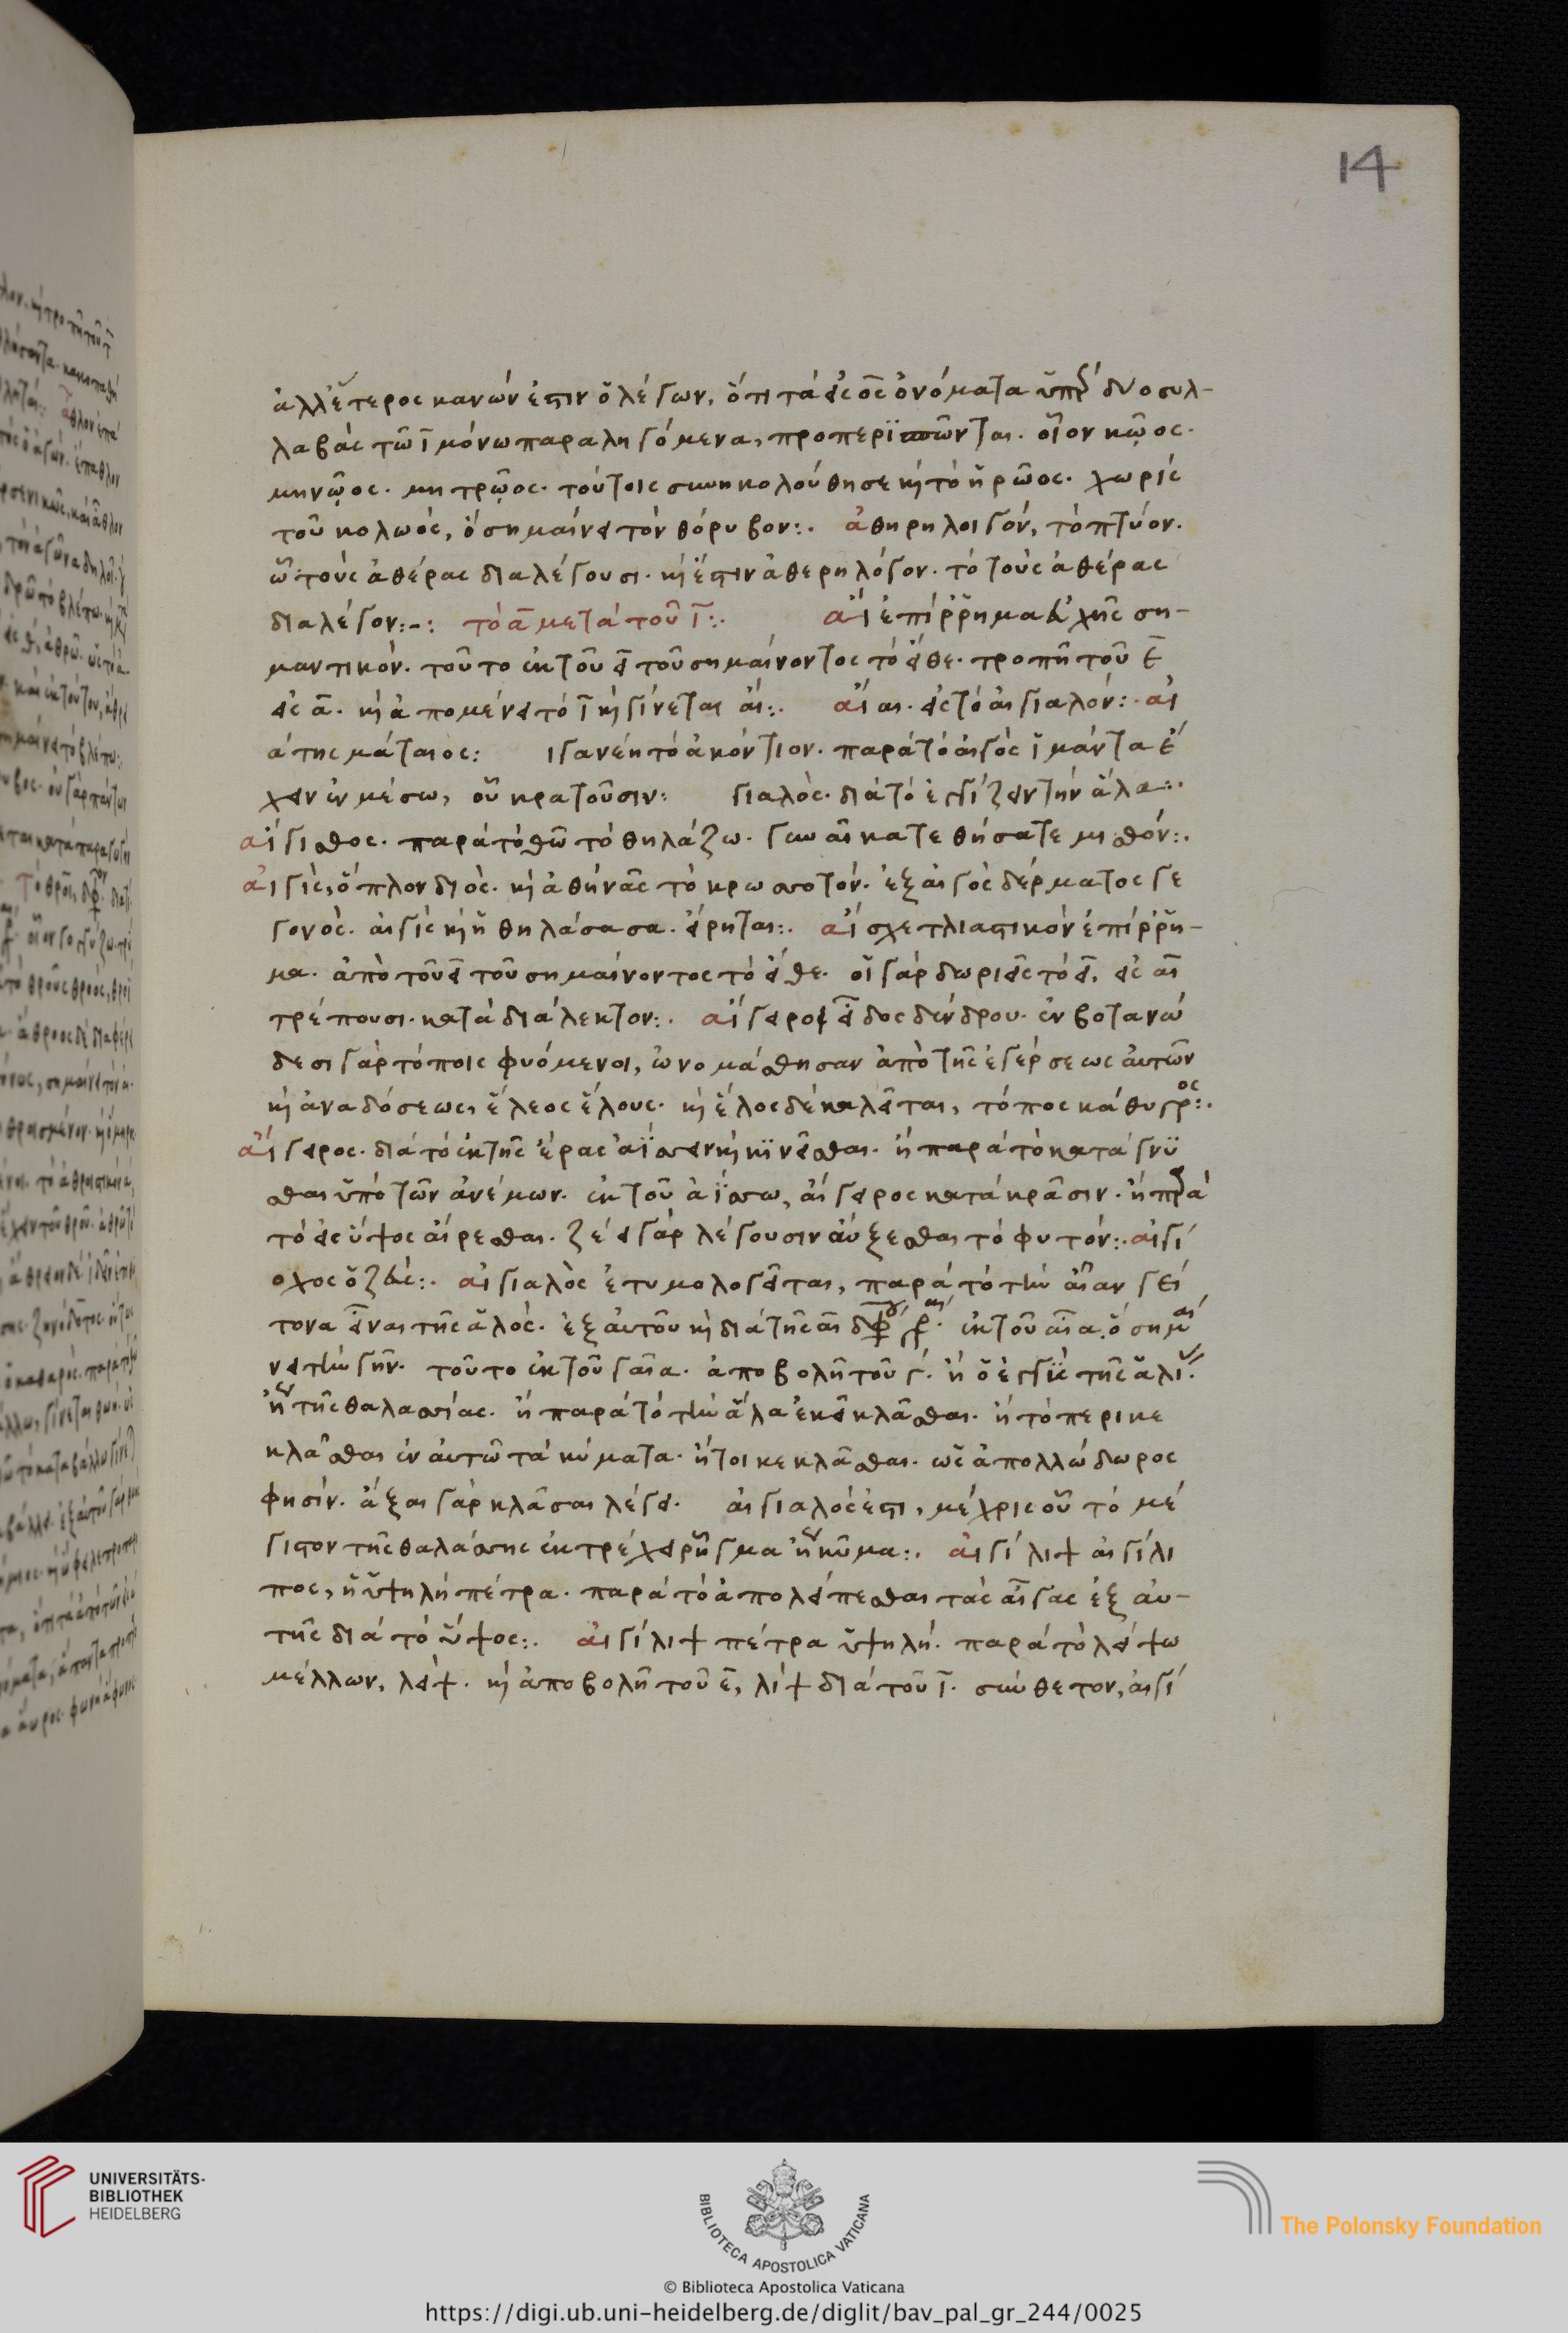 14
ἀλλ' ἕτερος κανών ἐστιν ὁ λέγων, ὅτι τὰ εἰς ος ὀνόματα ὑπὲρ δύο συλ-
λαβὰς τῶ ι μόνω παραληγόμενα, προπερισπῶνται. οἷον κῶος.
μηνῶος. μητρῶος. τούτοις συνηκολούθησε καὶ τὸ ἡρῶος. χωρὶς
τοῦ κολωός, ὃ σημαίνει τὸν θόρυβον:. ἀθηρηλοιγόν, τὸ πτύον.
ὧ τοὺς ἀθέρας διαλέγουσι. καὶ ἔστιν ἀθερηλόγον. τὸ τοὺς ἀθέρας
διαλέγον:-: τὸ α μετὰ τοῦ ι:. αἲ ἐπίρρημα εὐχῆς ση-
μαντικόν. τοῦτο ἐκ τοῦ ει τοῦ σημαίνοντος τὸ εἴθε. τροπῆ τοῦ ε
εἰς α. καὶ ἀπομένει τὸ ι καὶ γίνεται αἰ:. αἴαι. εἰς τὸ αἰγιαλόν:. αἰ
άτης μάταιος: ιγανέη τὸ ἀκόντιον. παρὰ τὸ αἰγὸς ἱμάντα ἔ
χειν ἐν μέσω, οὗ κρατοῦσιν: γιαλὸς. διὰ τὸ ἐγγίζειν τὴν ἅλα:.
αἴγισθος. παρὰ τὸ θῶ τὸ θηλάζω. γυναῖκά τε θήσατε μισθόν:.
αἰγὶς, ὅπλον διὸς. καὶ ἀθήνας τὸ κρωσσοτόν. ἐξ αἰγὸς δέρματος γε
γονὸς. αἰγὶς καὶ ἡ θηλάσασα. εἴρηται:. αἲ σχετλιαστικόν ἐπίρρη-
μα. ἀπὸ τοῦ ει τοῦ σημαίνοντος τὸ εἴθε. οἱ γὰρ δωριεῖς τὸ ει, εἰς αι
τρέπουσι. κατὰ διάλεκτον:. αἴγειροι εἶδος δένδρου. ἐν βοτανώ
δεσι γὰρ τόποις φυόμενοι, ὠνομάσθησαν ἀπὸ τῆς ἐγέρσεως αὐτῶν
καὶ ἀναδόσεως, ἕλεος ἕλους. καὶ ἕλος δὲ καλεῖται, τόπος κάθυγρος:.
αἴγειρος. διὰ τὸ ἐκ τῆς ἔρας ἀΐσσειν καὶ κινεῖσθαι. ἢ παρὰ τὸ κατάγνυ
σθαι ὑπὸ τῶν ἀνέμων. ἐκ τοῦ ἀΐσσω, αἴγειρος κατὰ κρᾶσιν. ἢ παρὰ
τὸ εἰς ὕψος αἴρεσθαι. ζέει γὰρ λέγουσιν αὔξεσθαι τὸ φυτόν:. αἰγί
οχος ὁ ζεύς:. αἰγιαλὸς ἐτυμολογεῖται, παρὰ τὸ τὴν αἶαν γεί
τονα εἶναι τῆς ἁλός. ἐξ αὐτοῦ καὶ διὰ τῆς αι δφ γρ. ἐκ τοῦ αἶα. ὃ σημαί
νει τὴν γῆν. τοῦτο ἐκ τοῦ γαῖα. ἀποβολῆ τοῦ γ. ἢ ὁ ἐγγὺς τῆς ἁλὶ.
ἢ τῆς θαλασσίας. ἢ παρὰ τὸ τὴν ἅλα ἐκεῖ κλᾶσθαι. ἢ τὸ περικε
κλᾶσθαι ἐν αὐτῶ τὰ κύματα. ἤτοι κεκλᾶσθαι. ὡς ἀπολλώδωρος
φησίν. ἄξαι γὰρ κλᾶσαι λέγει. αἰγιαλός ἐστι, μέχρις οὗ τὸ μέ
γιστον τῆς θαλάσσης ἐκτρέχει ρῆγμα ἢ κῦμα:. αἰγίλιψ αἰγίλι
πος, ἡ ὑψηλὴ πέτρα. παρὰ τὸ ἀπολείπεσθαι τὰς αἶγας ἐξ αὐ-
τῆς διὰ τὸ ὕψος:. αἰγίλιψ πέτρα ὑψηλή. παρὰ τὸ λείψω
μέλλων, λείψ. καὶ ἀποβολῆ τοῦ ε, λὶψ διὰ τοῦ ι. σύνθετον, αἰγί
UNIVERSITÄTS-
BIBLIOTHEK
HEIDELBERG
BIBLIOTECA APOSTOLICA VATICANA
The Polonsky Foundation
© Biblioteca Apostolica Vaticana
https://digi.ub.uni-heidelberg.de/diglit/bav_pal_gr_244/0025